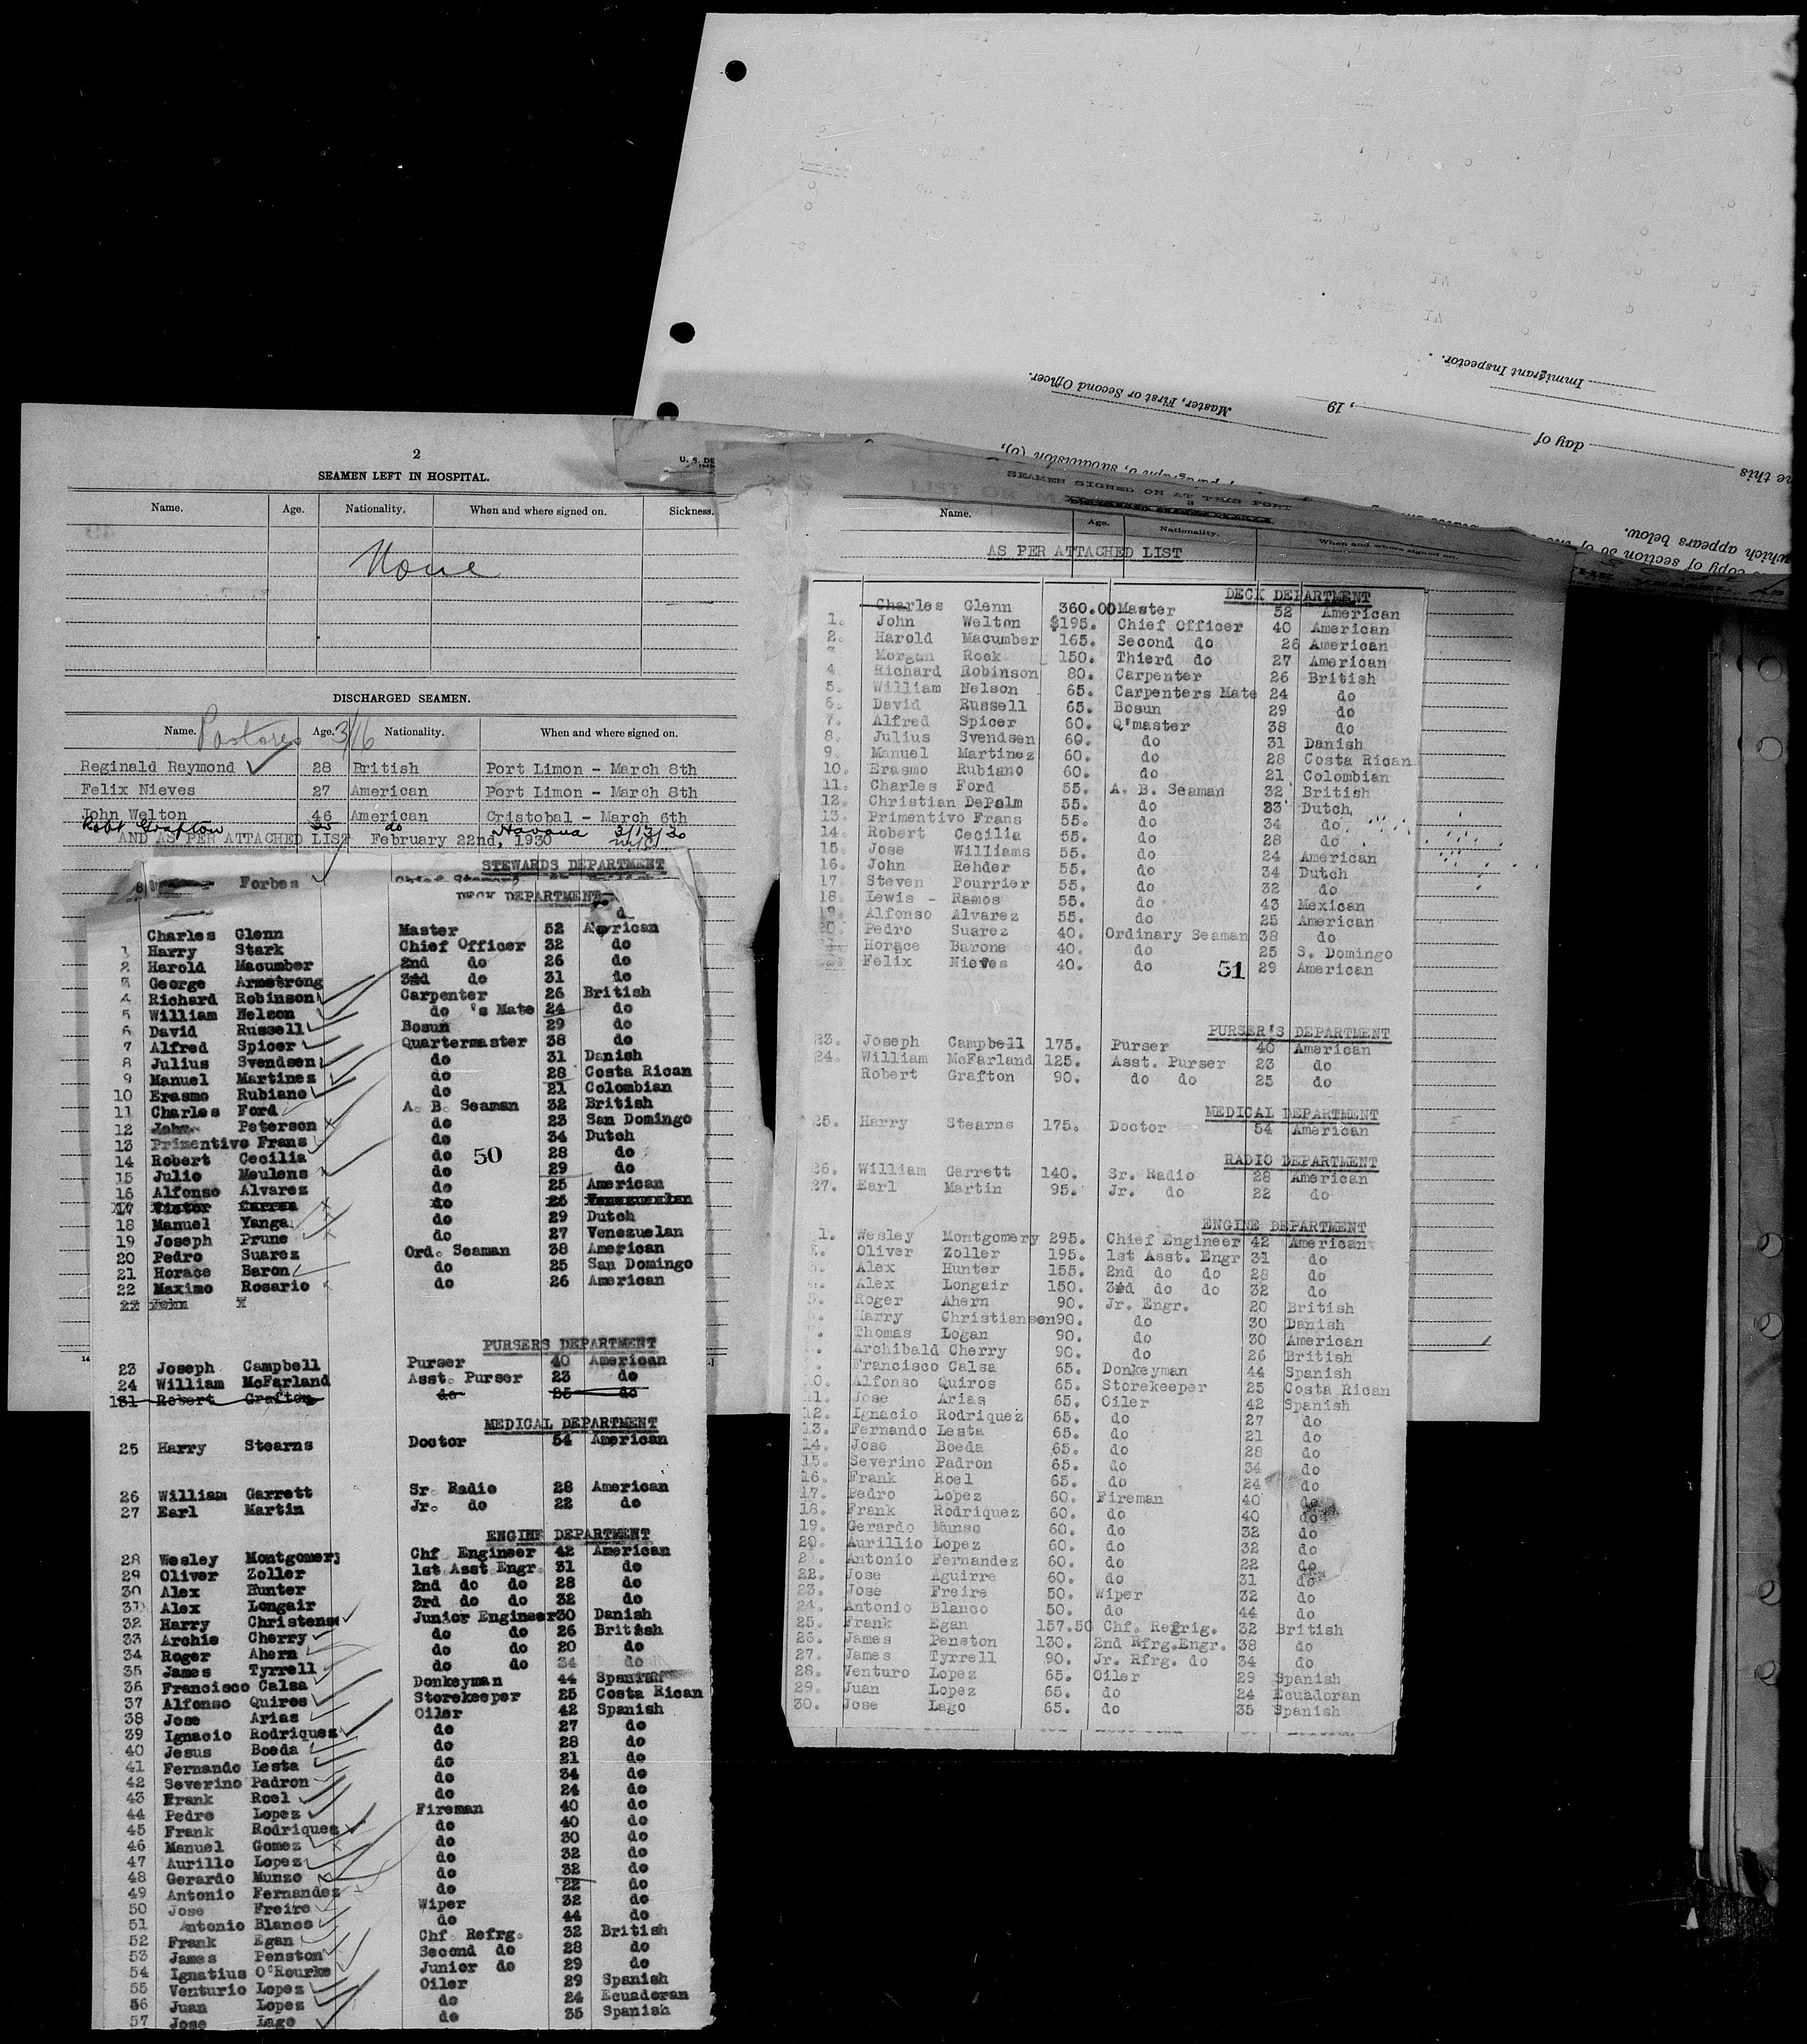 2
SEAMEN LEFT IN HOSPITAL.
U. S. DE
Name. Age. Nationality. When and where signed on. Sickness.
None
DISCHARGED SEAMEN.
Name. Age. Nationality. When and where signed on.
Pastores 3/16
Reginald Raymond 28 British Port Limon - March 8th
Felix Nieves 27 American Port Limon - March 8th
John Welton 46 American Cristobal - March 6th
Robt Grafton 25 do Havana 3/13/30
AND AS PER ATTACHED LIST February 22nd, 1930
STEWARDS DEPARTMENT
Forbes Chief Steward
DECK DEPARTMENT
Charles Glenn Master 52 American
1 Harry Stark Chief Officer 32 do
2 Harold Macumber 2nd do 26 do
3 George Armstrong 3rd do 31 do
4 Richard Robinson Carpenter 26 British
5 William Nelson do 's Mate 24 do
6 David Russell Bosun 29 do
7 Alfred Spicer Quartermaster 38 do
8 Julius Svendsen do 31 Danish
9 Manuel Martinez do 28 Costa Rican
10 Erasmo Rubiano do 21 Colombian
11 Charles Ford A. B. Seaman 32 British
12 John Peterson do 23 San Domingo
13 Primentivo Frans do 34 Dutch
14 Robert Cecilia do 28 do
50
15 Julio Meulens do 29 do
16 Alfonso Alvarez do 25 American
17 Victor Correa do 26 Venezuelan
18 Manuel Yanga do 29 Dutch
19 Joseph Prune do 27 Venezuelan
20 Pedro Suarez Ord. Seaman 38 American
21 Horace Baron do 25 San Domingo
22 Maximo Rosario do 26 American
John X
PURSERS DEPARTMENT
23 Joseph Campbell Purser 40 American
24 William McFarland Asst. Purser 23 do
181 Robert Grafton do 25 do
MEDICAL DEPARTMENT
25 Harry Stearns Doctor 54 American
26 William Garrett Sr. Radio 28 American
27 Earl Martin Jr. do 22 do
ENGINE DEPARTMENT
28 Wesley Montgomery Chf. Engineer 42 American
29 Oliver Zoller 1st Asst Engr. 31 do
30 Alex Hunter 2nd do do 28 do
31 Alex Longair 3rd do do 32 do
32 Harry Christens Junior Engineer 30 Danish
33 Archie Cherry do do 26 British
34 Roger Ahern do do 20 do
35 James Tyrrell do do 34 do
36 Francisco Calsa Donkeyman 44 Spanish
37 Alfonso Quiros Storekeeper 25 Costa Rican
38 Jose Arias Oiler 42 Spanish
39 Ignacio Rodriquez do 27 do
40 Jesus Boeda do 28 do
41 Fernando Lesta do 21 do
42 Severino Padron do 34 do
43 Frank Roel do 24 do
44 Pedro Lopez Fireman 40 do
45 Frank Rodriquez do 40 do
46 Manuel Gomez do 30 do
47 Aurillo Lopez do 32 do
48 Gerardo Munzo do 32 do
49 Antonio Fernandez do 22 do
50 Jose Freire Wiper 32 do
51 Antonio Blanco do 44 do
52 Frank Egan Chf. Refrg. 32 British
53 James Penston Second do 28 do
54 Ignatius O'Rourke Junior do 29 do
55 Venturio Lopez Oiler 29 Spanish
56 Juan Lopez do 24 Ecuadoran
57 Jose Lago do 35 Spanish
Immigrant Inspector.
Master, First or Second Officer.
, 19
day of
paragraph 5, subdivision (c),
which appears below.
copy of section 36 of
SEAMEN SIGNED ON AT THIS PORT
3
Name. Age. Nationality. When and where signed on.
AS PER ATTACHED LIST
DECK DEPARTMENT
Charles Glenn 360.00 Master 52 American
1. John Welton $195. Chief Officer 40 American
2. Harold Macumber 165. Second do 26 American
3 Morgan Rock 150. Thierd do 27 American
4 Richard Robinson 80. Carpenter 26 British
5. William Nelson 65. Carpenters Mate 24 do
6. David Russell 65. Bosun 29 do
7. Alfred Spicer 60. Q'master 38 do
8. Julius Svendsen 60. do 31 Danish
9. Manuel Martinez 60. do 28 Costa Rican
10. Erasmo Rubiano 60. do 21 Colombian
11. Charles Ford 55. A. B. Seaman 32 British
12. Christian DePalm 55. do 23 Dutch
13. Primentivo Frans 55. do 34 do
14. Robert Cecilia 55. do 28 do
15. Jose Williams 55. do 24 American
16. John Rehder 55. do 34 Dutch
17. Steven Pourrier 55. do 32 do
18. Lewis - Ramos 55. do 43 Mexican
19. Alfonso Alvarez 55. do 25 American
20. Pedro Suarez 40. Ordinary Seaman 38 do
Horace Barone 40. do 25 S. Domingo
Felix Nieves 40. do 29 American
51
PURSER'S DEPARTMENT
23. Joseph Campbell 175. Purser 40 American
24. William McFarland 125. Asst. Purser 23 do
Robert Grafton 90. do do 25 do
MEDICAL DEPARTMENT
25. Harry Stearns 175. Doctor 54 American
RADIO DEPARTMENT
26. William Garrett 140. Sr. Radio 28 American
27. Earl Martin 95. Jr. do 22 do
ENGINE DEPARTMENT
1. Wesley Montgomery 295. Chief Engineer 42 American
Oliver Zoller 195. 1st Asst. Engr 31 do
Alex Hunter 155. 2nd do do 28 do
Alex Longair 150. 3rd do do 32 do
Roger Ahern 90. Jr. Engr. 20 British
Harry Christiansen 90. do 30 Danish
Thomas Logan 90. do 30 American
Archibald Cherry 90. do 26 British
Francisco Calsa 65. Donkeyman 44 Spanish
10. Alfonso Quiros 65. Storekeeper 25 Costa Rican
11. Jose Arias 65. Oiler 42 Spanish
12. Ignacio Rodriquez 65. do 27 do
13. Fernando Lesta 65. do 21 do
14. Jose Boeda 65. do 28 do
15. Severino Padron 65. do 34 do
16. Frank Roel 65. do 24 do
17. Pedro Lopez 60. Fireman 40 do
18. Frank Rodriquez 60. do 40 do
19. Gerardo Munso 60. do 32 do
20. Aurillio Lopez 60. do 32 do
21. Antonio Fernandez 60. do 22 do
22. Jose Aguirre 60. do 31 do
23. Jose Freire 50. Wiper 32 do
24. Antonio Blanco 50. do 44 do
25. Frank Egan 157.50 Chf. Refrig. 32 British
26. James Penston 130. 2nd Rfrg.Engr. 38 do
27. James Tyrrell 90. Jr. Rfrg. do 34 do
28. Venturo Lopez 65. Oiler 29 Spanish
29. Juan Lopez 65. do 24 Ecuadoran
30. Jose Lago 65. do 35 Spanish